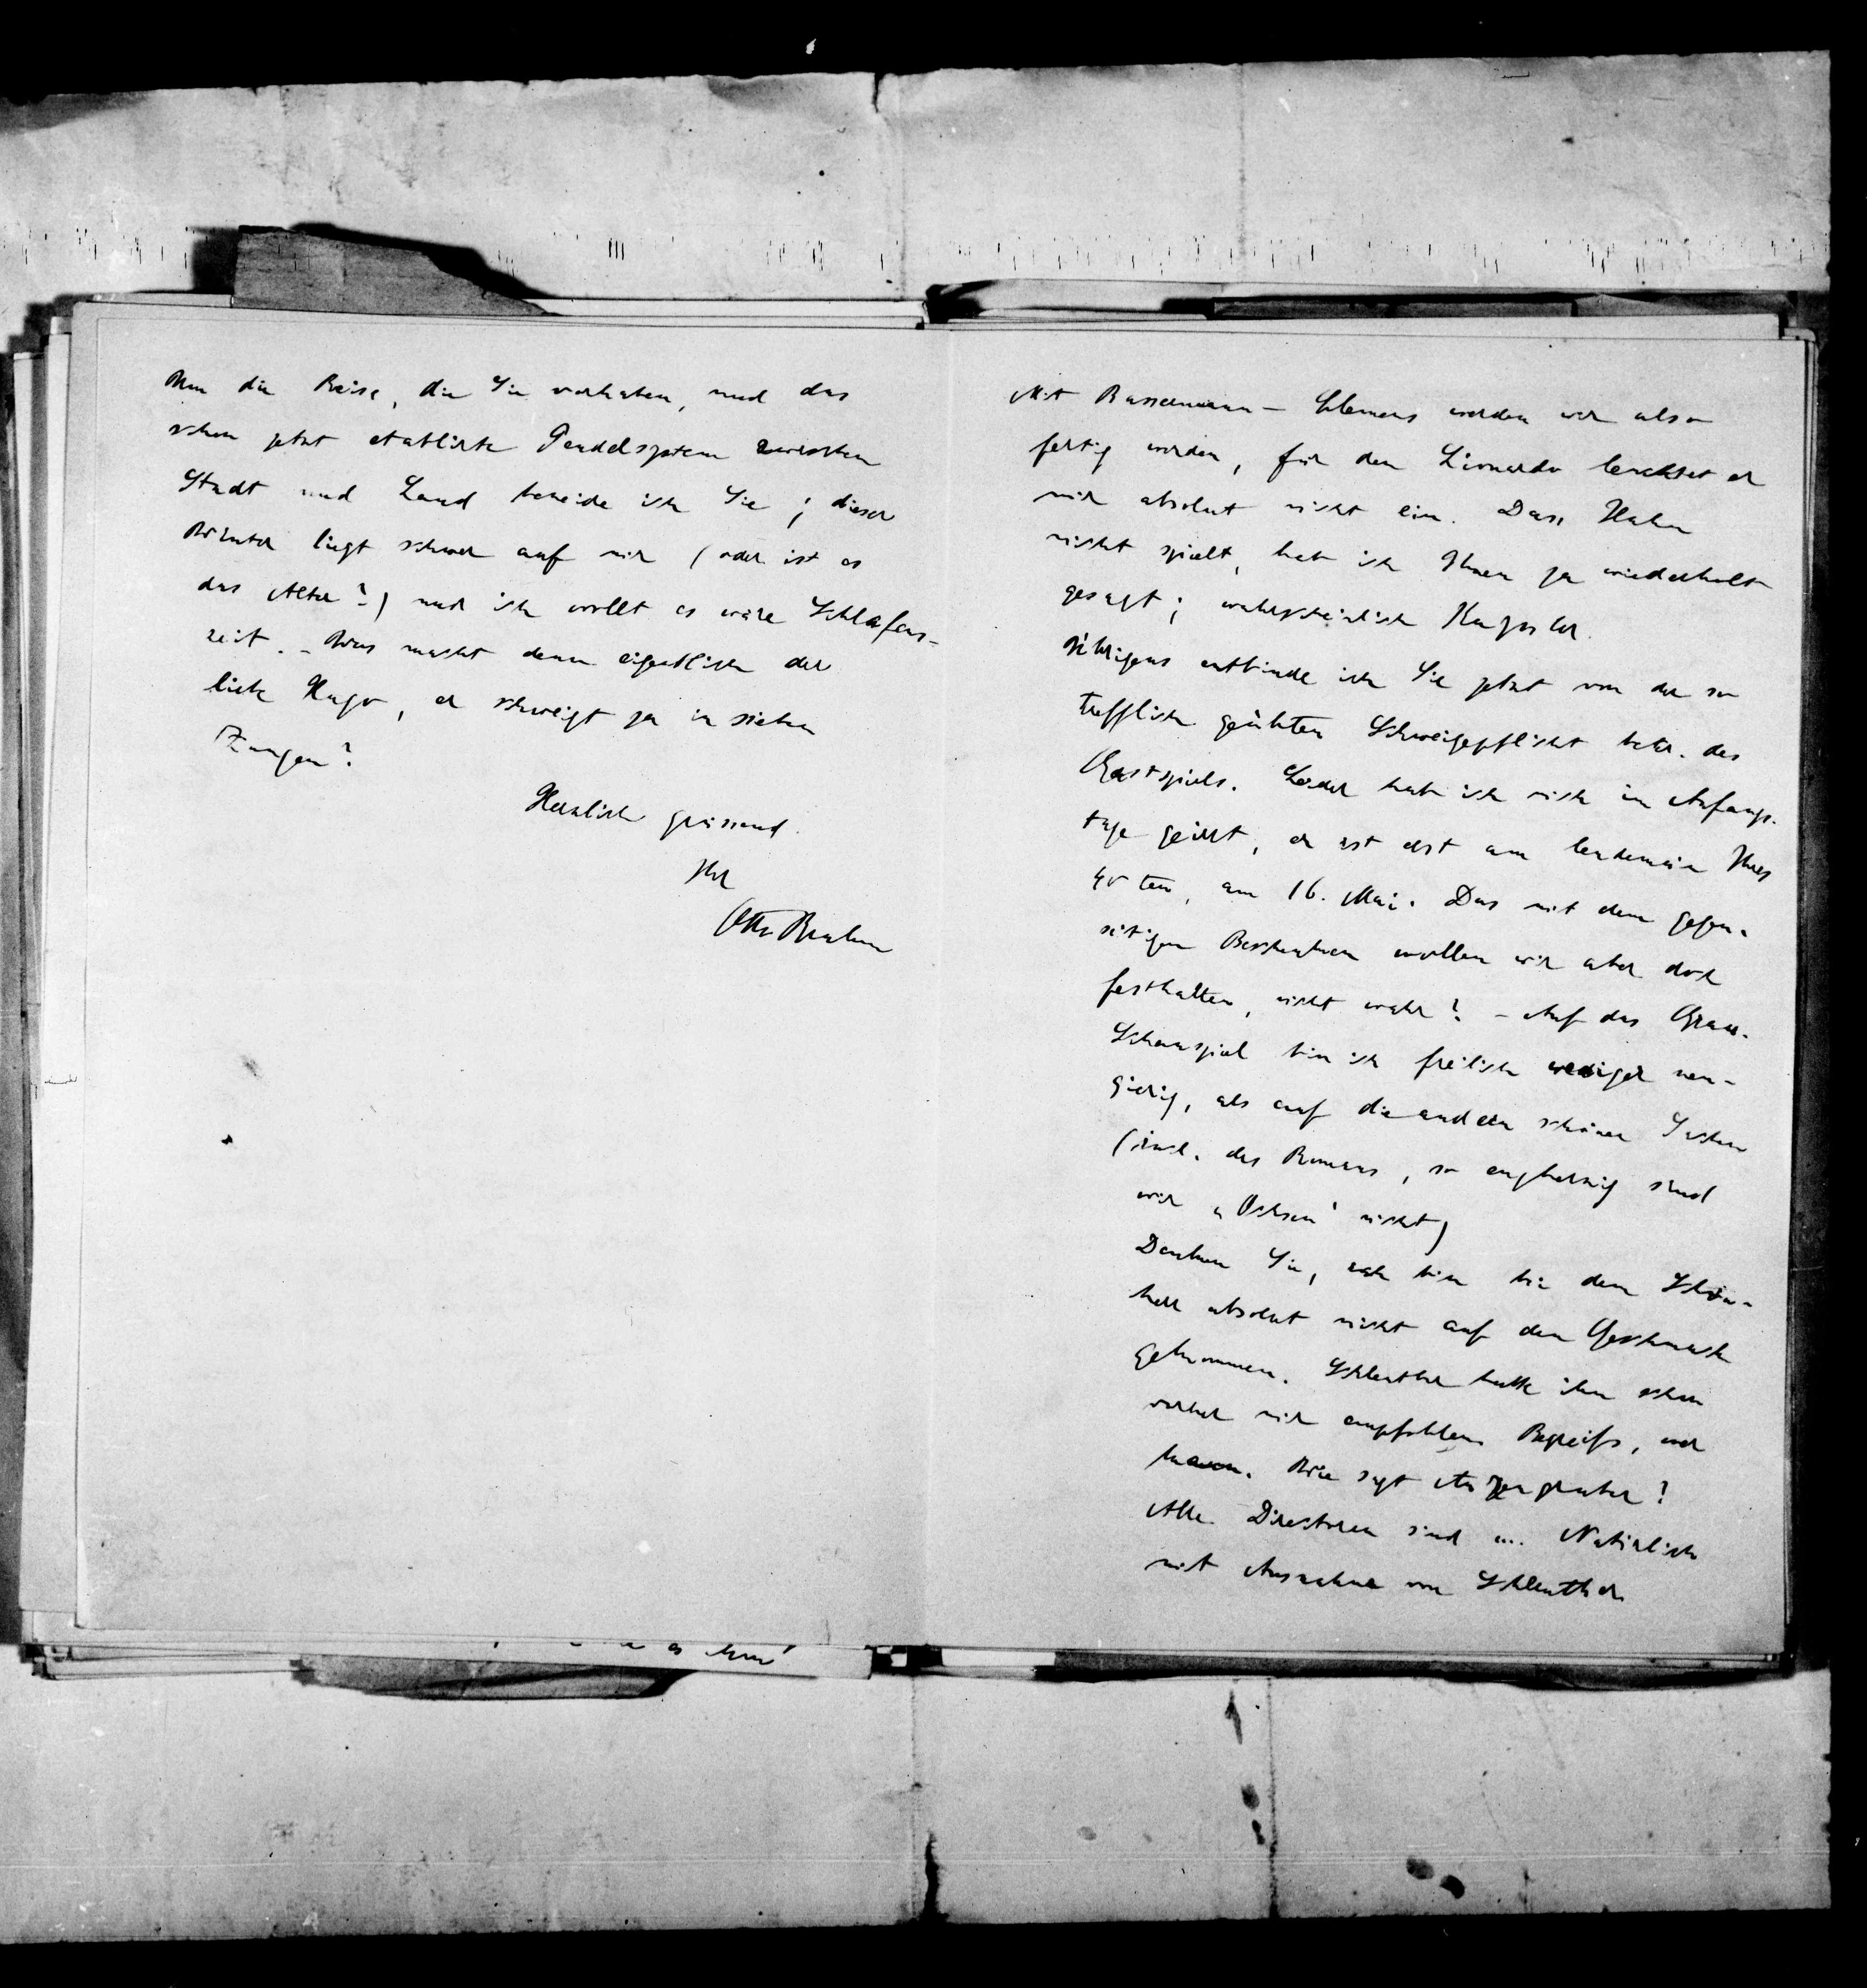 Um die Reise, die Sie vorhaben, und das
schon jetzt etablirte Pendelsystem zwischen
Stadt und Land beneide ich Sie; dieser
Winter liegt schwer auf mir (oder ist es
das Alter?) und ich wollt es wäre Schlafens-
zeit. – Was macht denn eigentlich der
liebe Hugo, er schweigt ja in sieben
Zungen?
Herzlich grüssend
Ihr
Otto Brahm
Mit Bassermann – Clemens werden wir also
fertig werden, für den Leonardo leuchtet er
mir absolut nicht ein. Dass Hahn
nicht spielt, hab ich Ihnen ja wiederholt
gesagt; wahrscheinlich Kayssler.
Übrigens entbinde ich Sie jetzt von der so
trefflich geübten Schweigepflicht betr. des
Gastspiels. Leider hab ich mich im Anfangs-
tage geirrt, er ist erst am lendemain Ihres
40 ten, am 16. Mai. Das mit dem gegen-
seitigen Beschenken wollen wir aber doch
festhalten, nicht wahr? – Auf das
Schauspiel bin ich freilich weniger neu-
gierig, als auf die andern schönen Sachen
(incl. des Romans, so engherzig sind
wir „Ochsen“ nicht)
Denken Sie, ich bin bei dem Schön-
herr absolut nicht auf den Geschmack
gekommen. Schlenther hatte ihn schon
vorher mir empfohlen. Begreifs, wer
kann. Wie sagt Anzengruber?
Alle Directoren sind .... Natürlich
mit Ausnahme von Schlenther